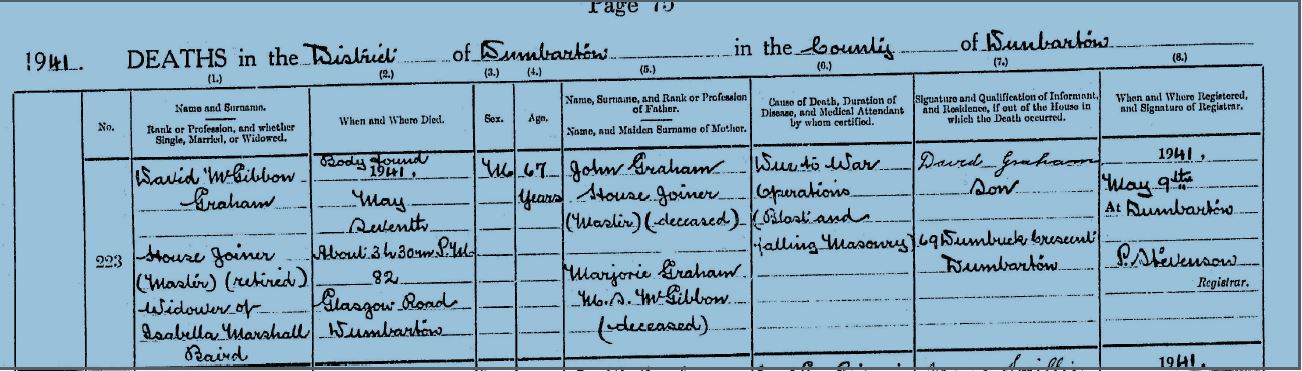 Page 75
1941. DEATHS in the District of Dumbarton in the County of Dunbarton
(1.) (2.) (3.) (4.) (5.) (6.) (7.) (8.)
No.
Name and Surname.
Rank or Profession, and whether
Single, Married, or Widowed.
When and Where Died.
Sex.
Age.
Name, Surname, and Rank or Profession
of Father.
Name, and Maiden Surname of Mother.
Cause of Death, Duration of
Disease, and Medical Attendant
by whom certified.
Signature and Qualification of Informant,
and Residence, if out of the House in
which the Death occurred.
When and Where Registered,
and Signature of Registrar.
223
David McGibbon
Graham
House Joiner
(Master) (retired)
Widower of
Isabella Marshall
Baird
Body found
1941.
May
Seventh
About 3h 30m P.M.
82
Glasgow Road
Dumbarton
M
67
Years
John Graham
House Joiner
(Master) (deceased)
Marjorie Graham
M.S. McGibbon
(deceased)
Due to War
Operations
(Blast and
falling Masonry)
David Graham
Son
69 Dumbuck Crescent
Dumbarton
1941.
May 9th
At Dumbarton
P. Stevenson
Registrar.
1941.